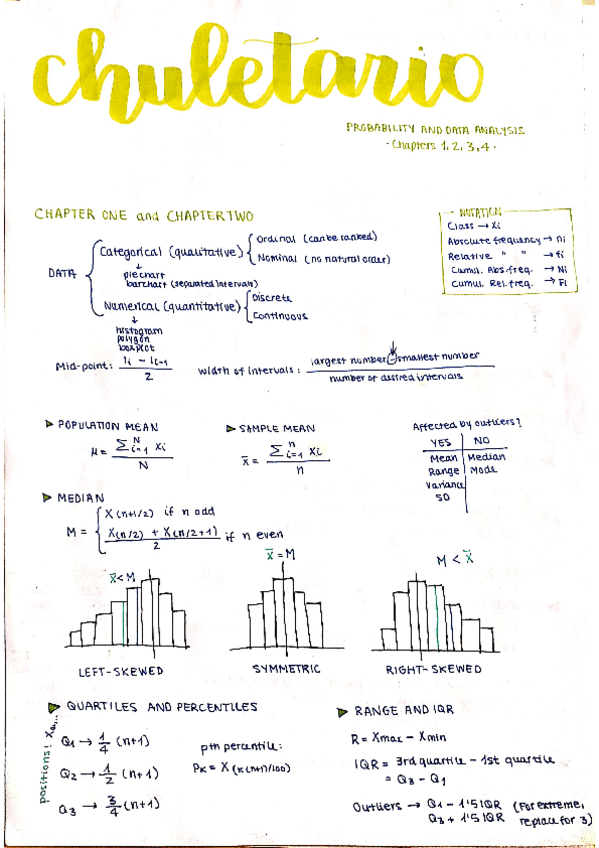 chuletario
PROBABILITY AND DATA ANALYSIS
· Chapters 1, 2, 3, 4 ·
CHAPTER ONE and CHAPTER TWO
NOTATION
Class → xi
Absolute frequency → ni
Relative " " → fi
Cumul. Abs. freq. → Ni
Cumul. Rel. freq. → Fi
DATA
Categorical (qualitative)
Ordinal (can be ranked)
Nominal (no natural order)
↓
piechart
barchart (separated intervals)
Numerical (quantitative)
Discrete
Continuous
↓
histogram
polygon
boxplot
Mid-point: (li - li-1) / 2
Width of intervals: (largest number - smallest number) / number of desired intervals
▶ POPULATION MEAN
μ = ∑ᴺi=1 xi / N
▶ SAMPLE MEAN
x̄ = ∑ⁿi=1 xi / n
Affected by outliers?
YES | NO
Mean | Median
Range | Mode
Variance
SD
▶ MEDIAN
M =
X(n+1/2) if n odd
(X(n/2) + X(n/2+1)) / 2 if n even
x̄ < M
x̄ = M
M < x̄
LEFT-SKEWED
SYMMETRIC
RIGHT-SKEWED
▶ QUARTILES AND PERCENTILES
positions! X₍ₙ₎...
Q1 → 1/4 (n+1)
Q2 → 1/2 (n+1)
Q3 → 3/4 (n+1)
pth percentile:
PK = X(K(n+1)/100)
▶ RANGE AND IQR
R = Xmax - Xmin
IQR = 3rd quartile - 1st quartile
= Q3 - Q1
Outliers → Q1 - 1'5 IQR (For extreme,
Q3 + 1'5 IQR replace for 3)